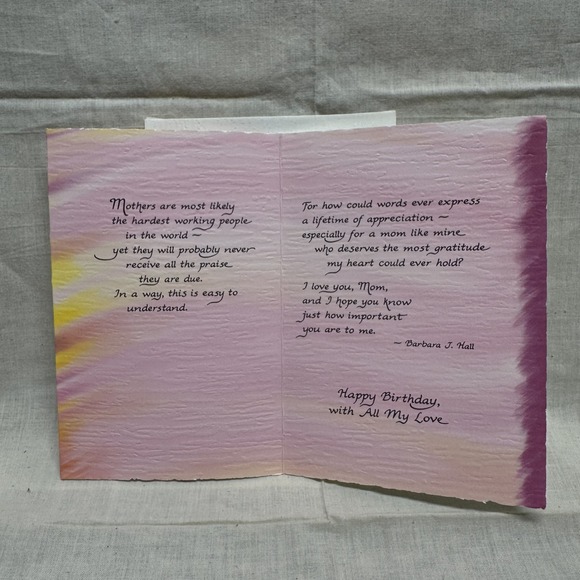 Mothers are most likely
the hardest working people
in the world ~
yet they will probably never
receive all the praise
they are due.
In a way, this is easy to
understand.
For how could words ever express
a lifetime of appreciation ~
especially for a mom like mine
who deserves the most gratitude
my heart could ever hold?
I love you, Mom,
and I hope you know
just how important
you are to me.
~ Barbara J. Hall
Happy Birthday,
with All My Love